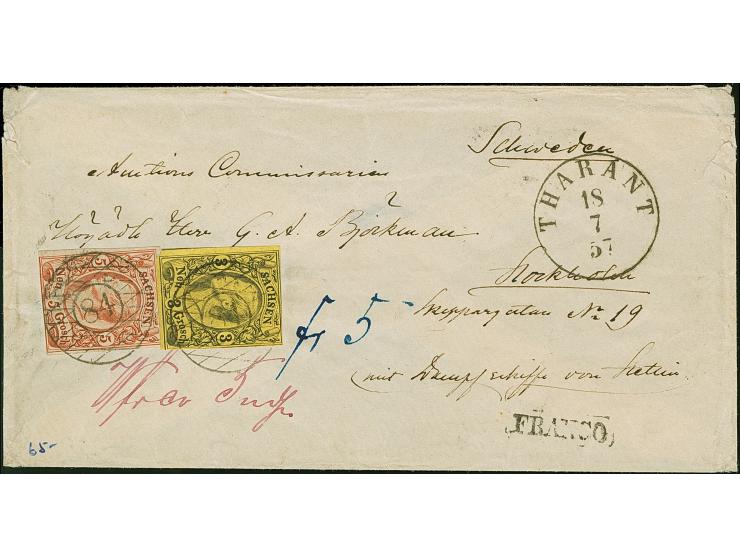 Schweden
Auctions Commissarien
Herr G. A. Björkman
THARANT
18
7
57
Stockholm
Skeppargatan No 19
mit Dampfschiffe von Stettin
SACHSEN
5 Neu-Grosch. 5
84
SACHSEN
3 Neu-Grosch. 3
fr 5
FRANCO
65-